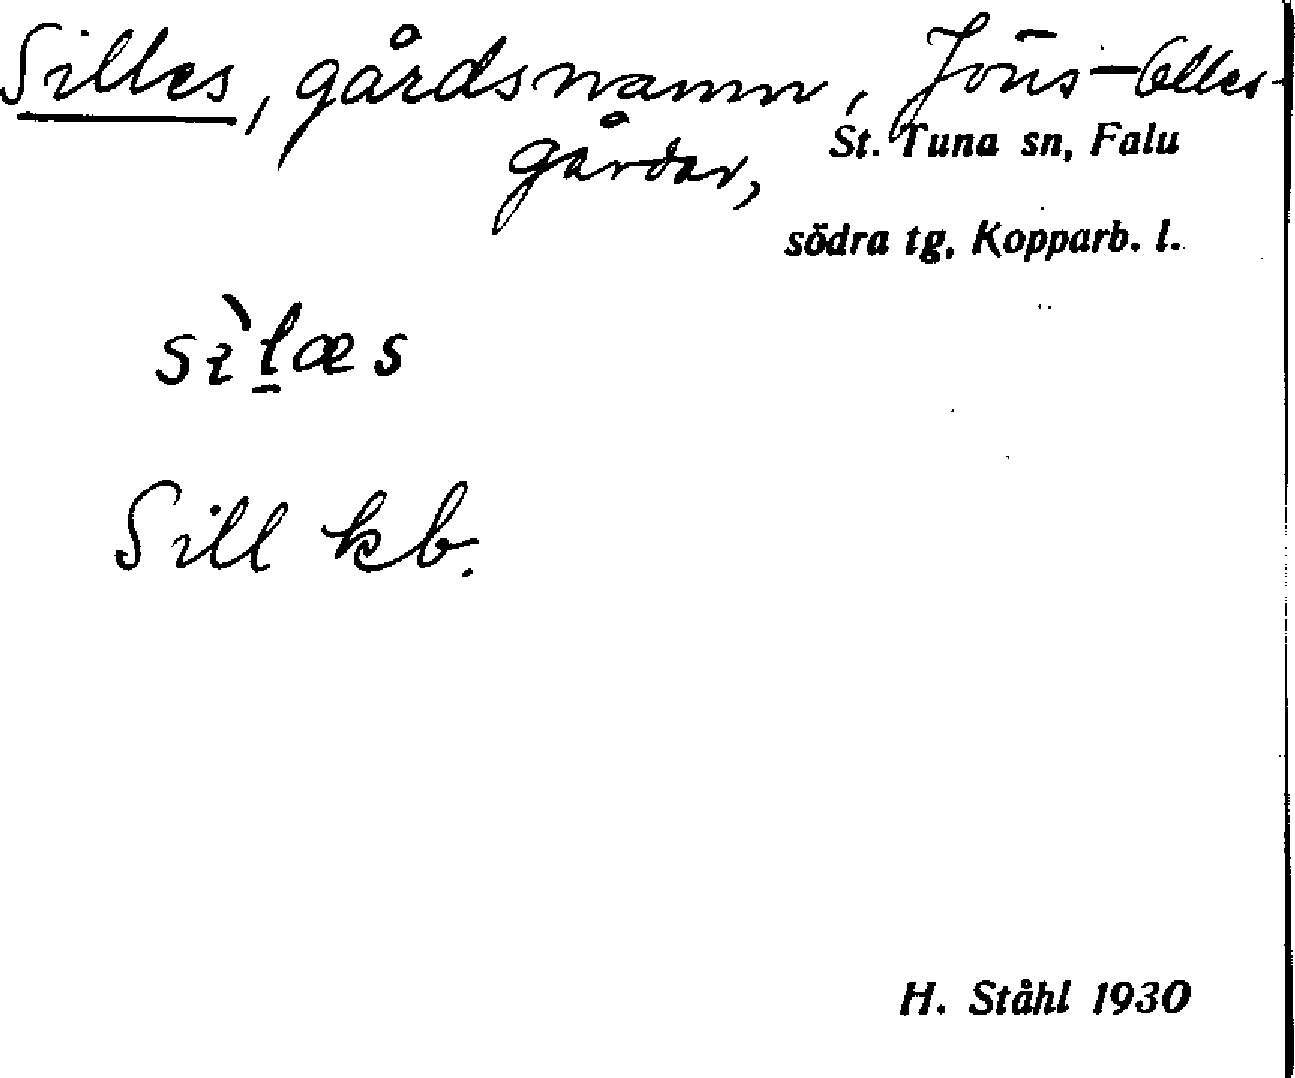 Silles, gårdsnamn, Jöns-Olles-
gårdar,
St. Tuna sn, Falu
södra tg, Kopparb. l.
sɪ̀l̠æs
Sill kb.
H. Ståhl 1930